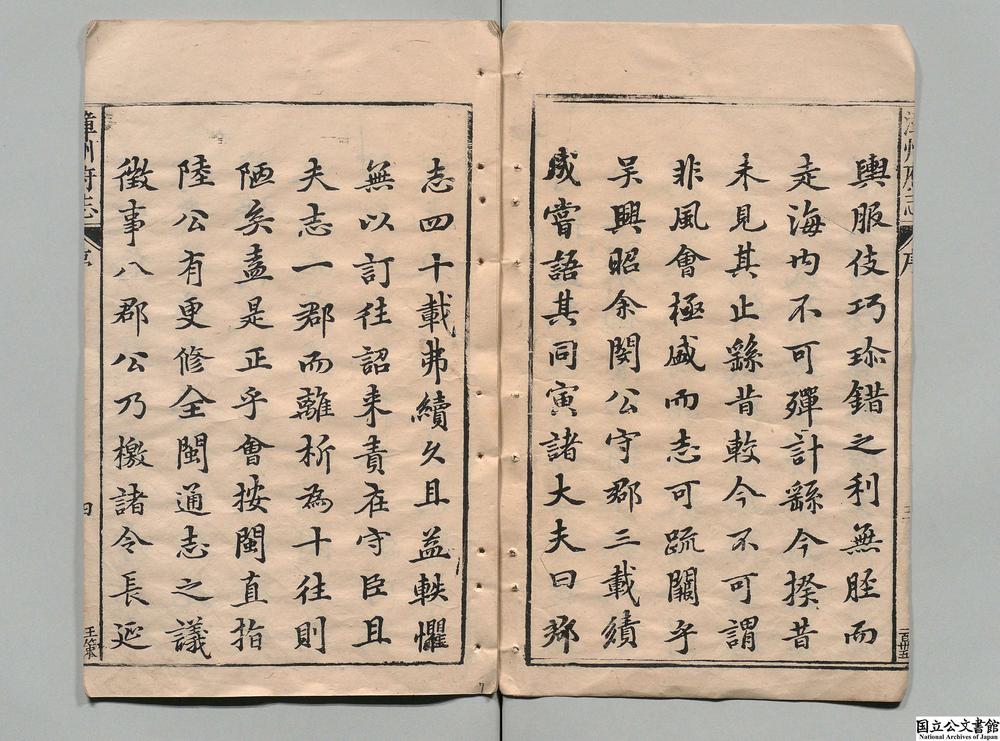 漳州府志
序
輿服伎巧珎錯之利無胫而
走海内不可殫計繇今揆昔
未見其止繇昔較今不可謂
非風會極盛而志可疏闊乎
吴興昭余閔公守郡三載績
成嘗語其同寅諸大夫曰郡
志四十載弗續久且益軼懼
無以訂往詔来責在守臣且
夫志一郡而離析為十往則
陋矣盍是正乎會按閩直指
陸公有更修全閩通志之議
徵事八郡公乃檄諸令長延
漳州府志
序
四
国立公文書館
National Archives of Japan